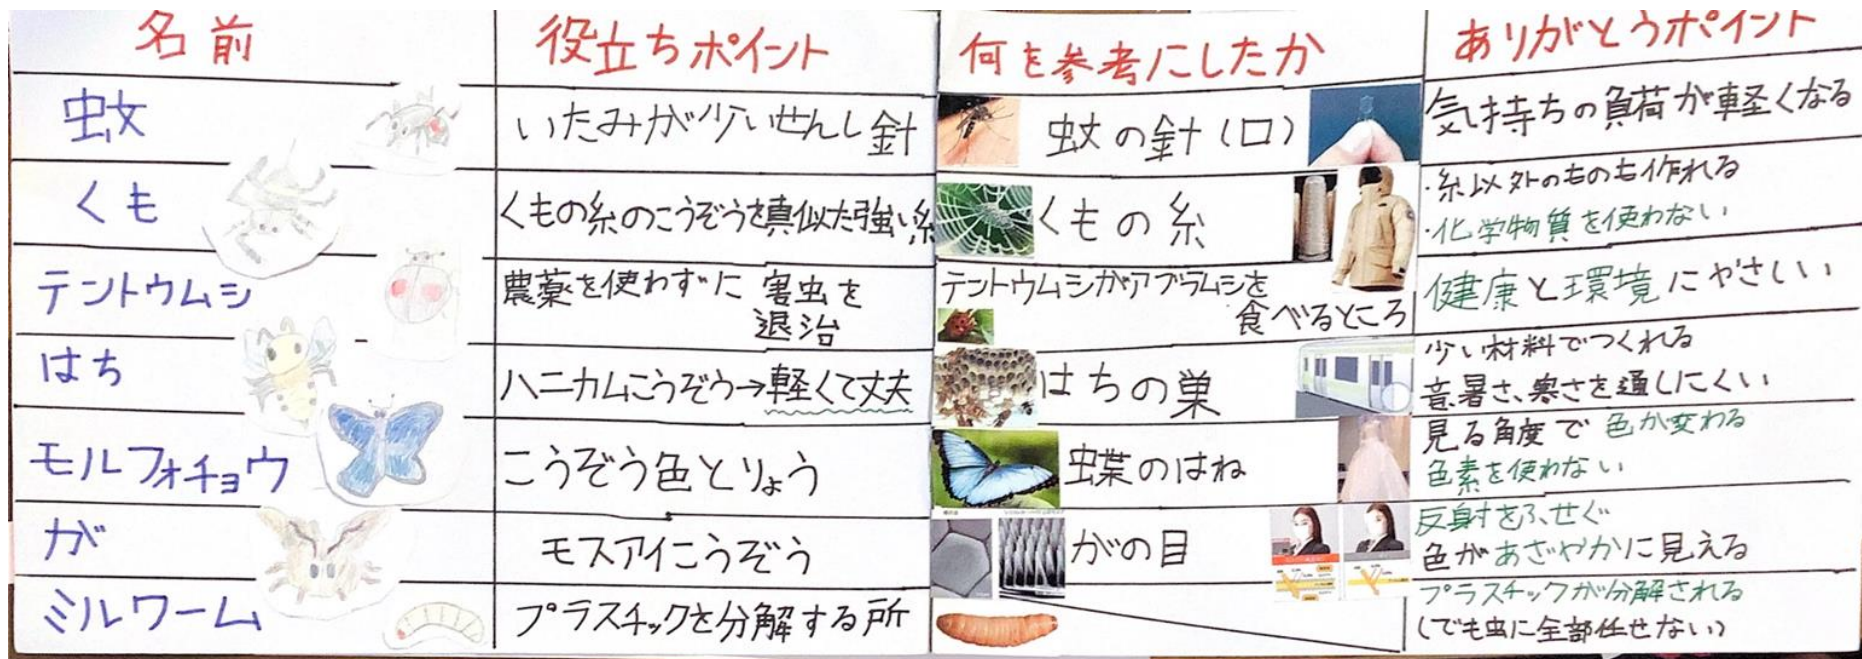 名前 役立ちポイント 何を参考にしたか ありがとうポイント
蚊 いたみが少いせんし針 蚊の針(口) 気持ちの負荷が軽くなる
くも くもの糸のこうぞうを真似た強い糸 くもの糸
・糸以外のものも作れる
・化学物質を使わない
テントウムシ
農薬を使わずに 害虫を
退治
テントウムシがアブラムシを
食べるところ
健康と環境にやさしい
はち ハニカムこうぞう→軽くて丈夫 はちの巣
少い材料でつくれる
音、暑さ、寒さを通しにくい
モルフォチョウ こうぞう色とりょう 蝶のはね
見る角度で 色が変わる
色素を使わない
が モスアイこうぞう がの目
反射をふせぐ
色があざやかに見える
ミルワーム プラスチックを分解する所
プラスチックが分解される
(でも虫に全部任せない)